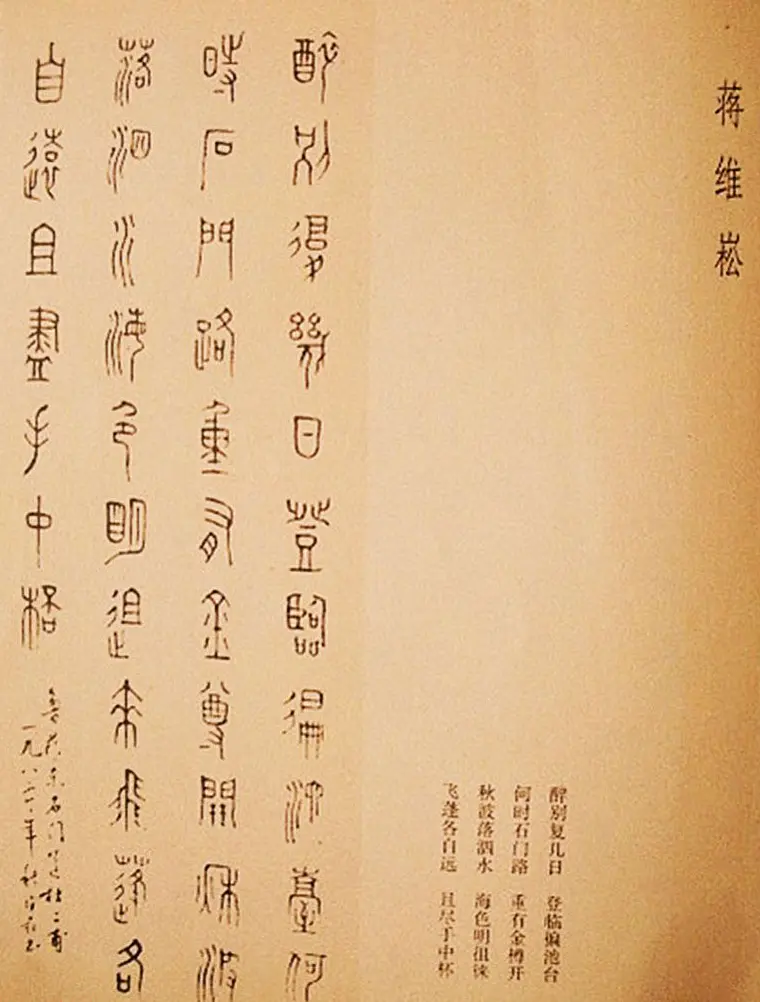 蒋维崧
醉别复几日 登临徧池台
何时石门路 重有金樽开
秋波落泗水 海色明徂徕
飞蓬各自远 且尽手中杯
醉別復幾日登臨徧池臺何
時石門路重有金尊開秋波
落泗水海色明徂來飛蓬各
自遠且盡手中桮
石门送杜二甫
一九八 年秋